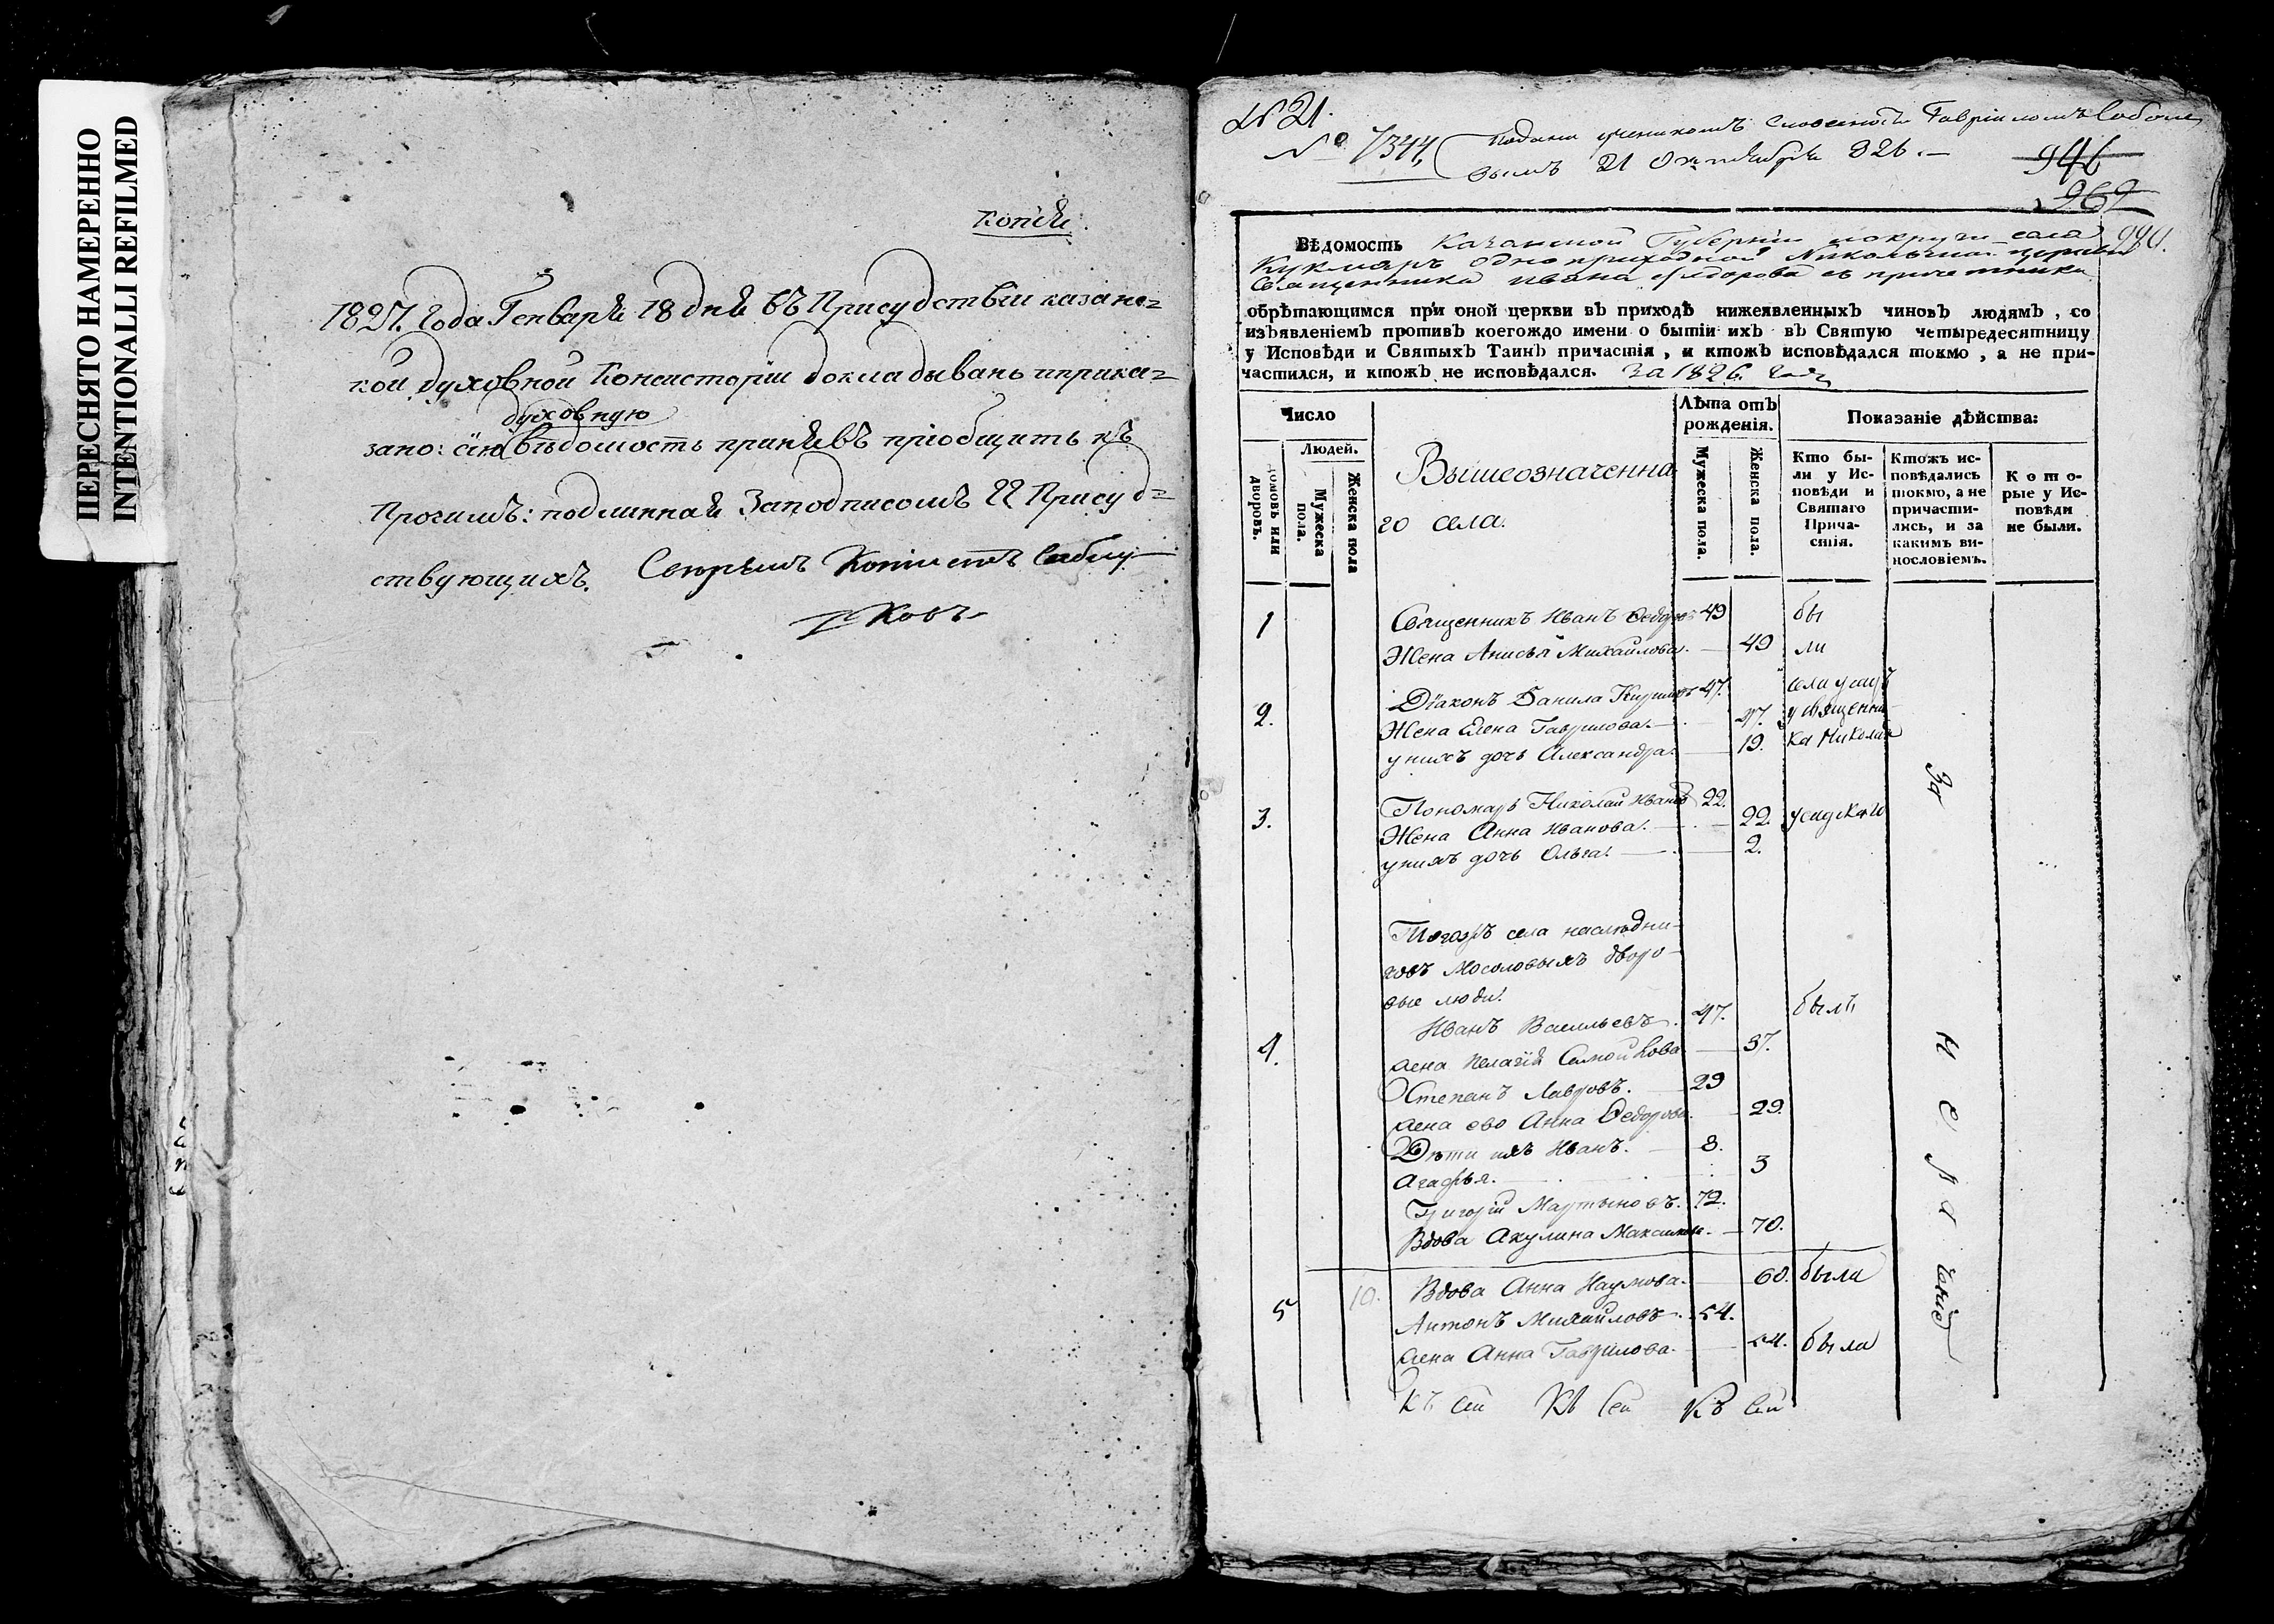 ПЕРЕСНЯТО НАМЕРЕННО
INTENTIONALLI REFILMED
копія
1827. года Генваря 18 дня въ Присудствіи казанс=
кой духовной Консисторіи докладывано и прика=
духовную
зано: сію вѣдомость принявъ пріобщить къ
Прочимъ: подлинная за подписомъ гг Присуд=
ствующихъ.
№ 21.
№ 7344
Подана ученикомъ словесности Гавріиломъ Соболе
вымъ 21 октября 826.
946
969
Вѣдомость Казанской Губерніи и округи села
Кукморъ одноприходной Никольской церкви
Священника Ивана Ѳедорова съ причетники
обрѣтающимся при оной церкви въ приходѣ нижеявленныхъ чиновъ людямъ, со
изъявленіемъ противъ коегождо имени о бытіи ихъ въ Святую четыредесятницу
у Исповѣди и Святыхъ Таинъ причастія, и ктожъ исповѣдался токмо, а не при-
частился, и ктожъ не исповѣдался. За 1826. годъ
Число
домовъ или дворовъ.
Людей.
Мужеска пола.
Женска пола
Вышеозначенна
го села.
Лѣта отъ рожденія.
Мужеска пола.
Женска пола.
Показаніе дѣйства:
Кто бы-
ли у Ис-
повѣди и
Святаго
Прича-
стія.
Ктожъ ис-
повѣдались
токмо, а не
причасти-
лись, и за
какимъ ви-
нословіемъ.
Кото-
рые у Ис-
повѣди
не были.
1 Священникъ Иванъ Ѳедоровъ 49 бы
Жена Анисья Михайлова. 49 ли
2. Діаконъ Данила Кириловъ 47.
Жена Елена Гаврилова. 47. у священни
у нихъ дочь Александра. 19. ка Николая
3. Пономарь Николай Ивановъ 22.
Жена Анна Иванова. 22.
у нихъ дочь Ольга. 2.
Тогожъ села наслѣдни-
ковъ Мосоловыхъ дворо-
вые люди.
4. Иванъ Васильевъ. 47. былъ
жена Пелагія Самойлова 37.
Степанъ Лавровъ. 29
жена ево Анна Ѳедорова. 29.
Дѣти ихъ Иванъ. 8.
Агафья. 3
Григорій Мартыновъ. 72.
Вдова Акулина Максимова. 70.
5 10. Вдова Анна Наумова. 60. была
Антонъ Михайловъ. 54.
жена Анна Гаврилова. 54. была
Къ сей Къ сей Къ сей